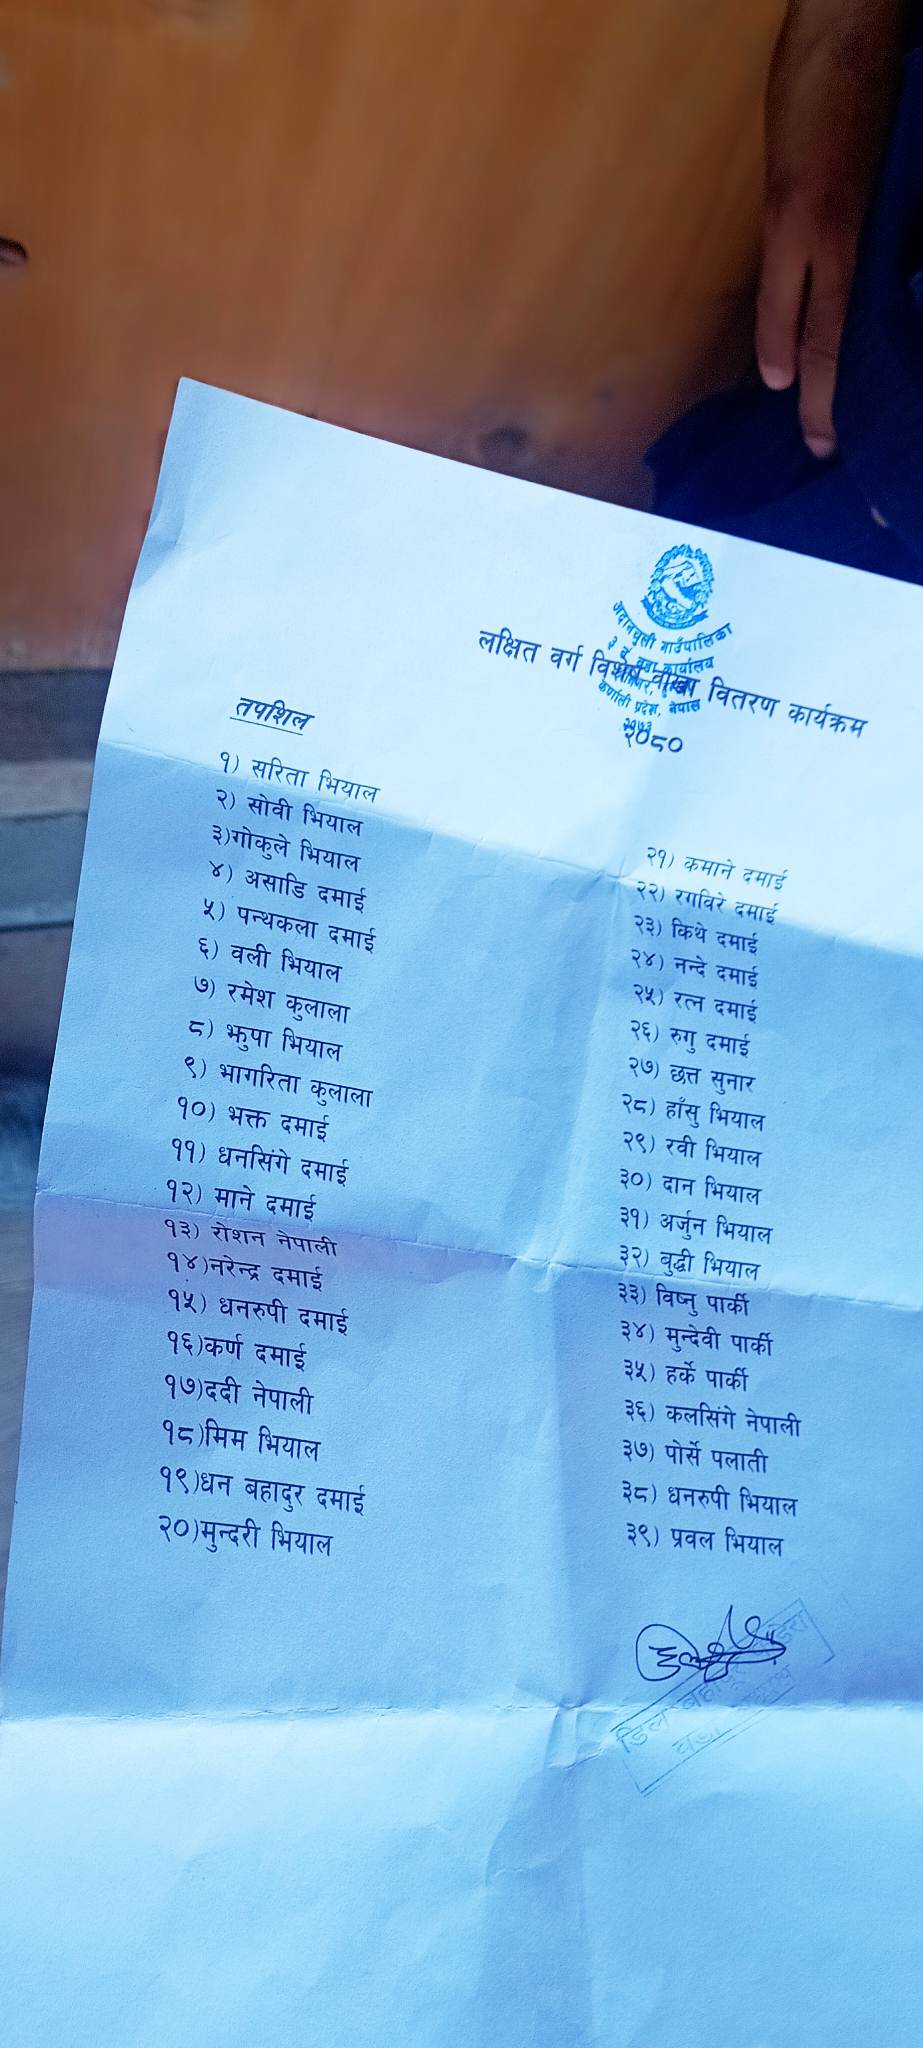 अदानचुली गाउँपालिका
३ नं वडा कार्यालय
कर्णाली प्रदेश, नेपाल
२०७३
लक्षित वर्ग विशेष वाख्रा वितरण कार्यक्रम
२०८०
तपशिल
१) सरिता भियाल
२) सोवी भियाल
३)गोकुले भियाल
४) असाडि दमाई
५) पन्थकला दमाई
६) वली भियाल
७) रमेश कुलाला
८) झुपा भियाल
९) भागरिता कुलाला
१०) भक्त दमाई
११) धनसिंगे दमाई
१२) माने दमाई
१३) रोशन नेपाली
१४)नरेन्द्र दमाई
१५) धनरुपी दमाई
१६)कर्ण दमाई
१७)ददी नेपाली
१८)मिम भियाल
१९)धन बहादुर दमाई
२०)मुन्दरी भियाल
२१) कमाने दमाई
२२) रगविरे दमाई
२३) किथे दमाई
२४) नन्दे दमाई
२५) रत्न दमाई
२६) रुगु दमाई
२७) छत्त सुनार
२८) हाँसु भियाल
२९) रवी भियाल
३०) दान भियाल
३१) अर्जुन भियाल
३२) बुद्धी भियाल
३३) विष्नु पार्की
३४) मुन्देवी पार्की
३५) हर्के पार्की
३६) कलसिंगे नेपाली
३७) पोर्से पलाती
३८) धनरुपी भियाल
३९) प्रवल भियाल
डिल बहादुर
वडा